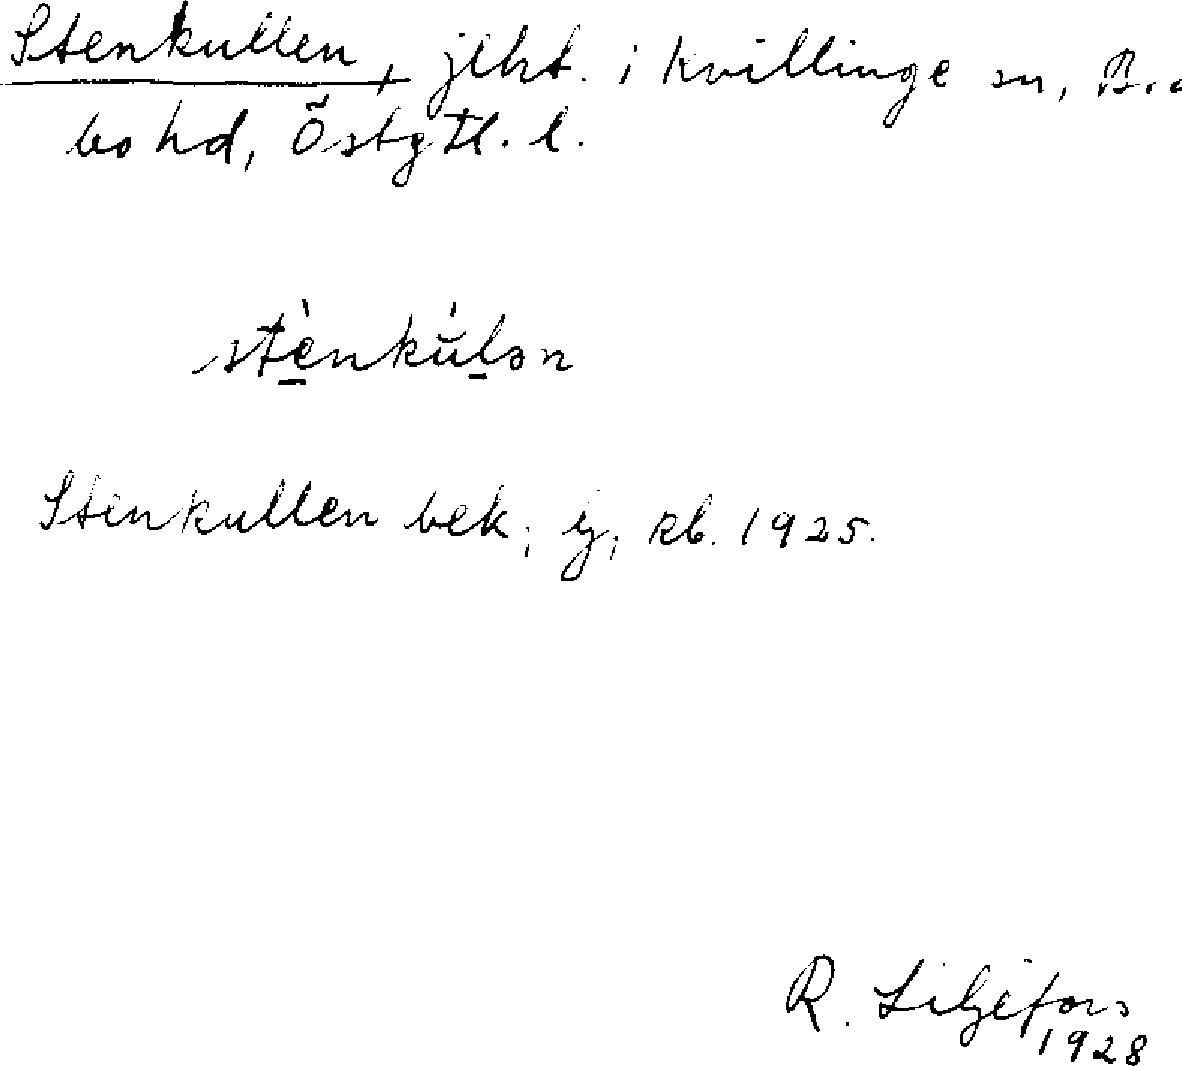 Stenkullen, jlht. i Kvillinge sn, Br
bo hd, Östgtl. l.
stènkùlən
Stenkullen bek, ij, kb. 1925.
R. Liljefors
1928